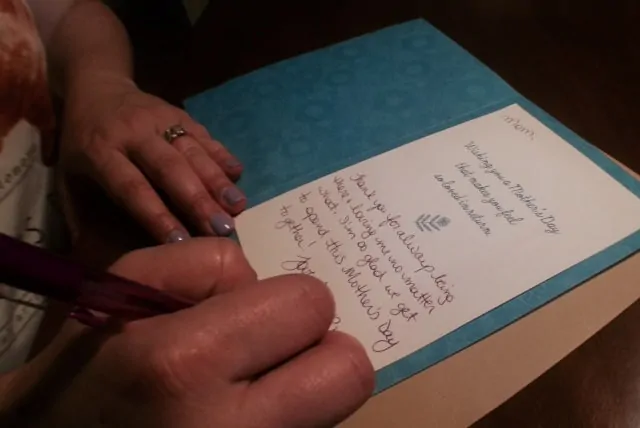 mom,
Wishing you a Mother's Day
that makes you feel
so loved in return.
Thank you for always being
there & loving me no matter
what. I'm so glad we get
to spend this Mother's Day
together!